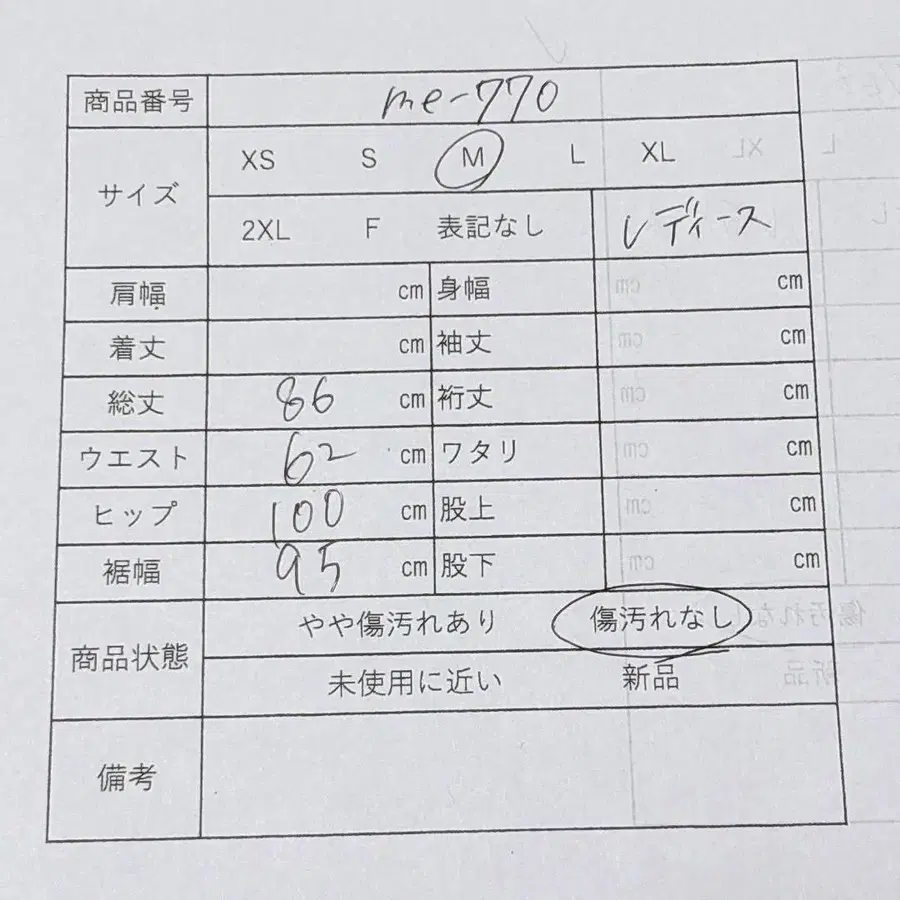 商品番号 me-770
サイズ XS S M L XL
2XL F 表記なし レディース
肩幅 cm 身幅 cm
着丈 cm 袖丈 cm
総丈 86 cm 裄丈 cm
ウエスト 62 cm ワタリ cm
ヒップ 100 cm 股上 cm
裾幅 95 cm 股下 cm
商品状態 やや傷汚れあり 傷汚れなし
未使用に近い 新品
備考